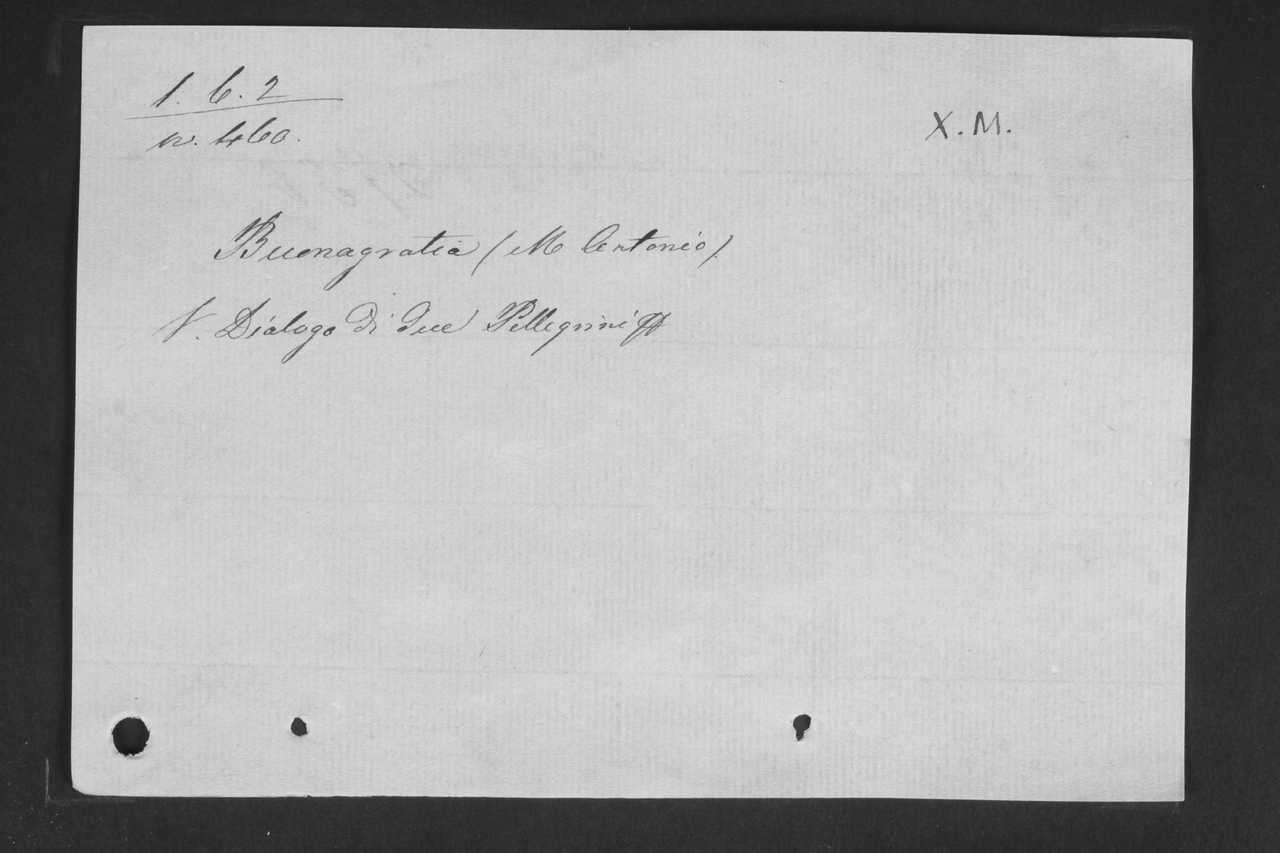 1. 6. 2
n. 460.
X. M.
Buonagratia (M Antonio).
V. Dialogo di due Pellegrini